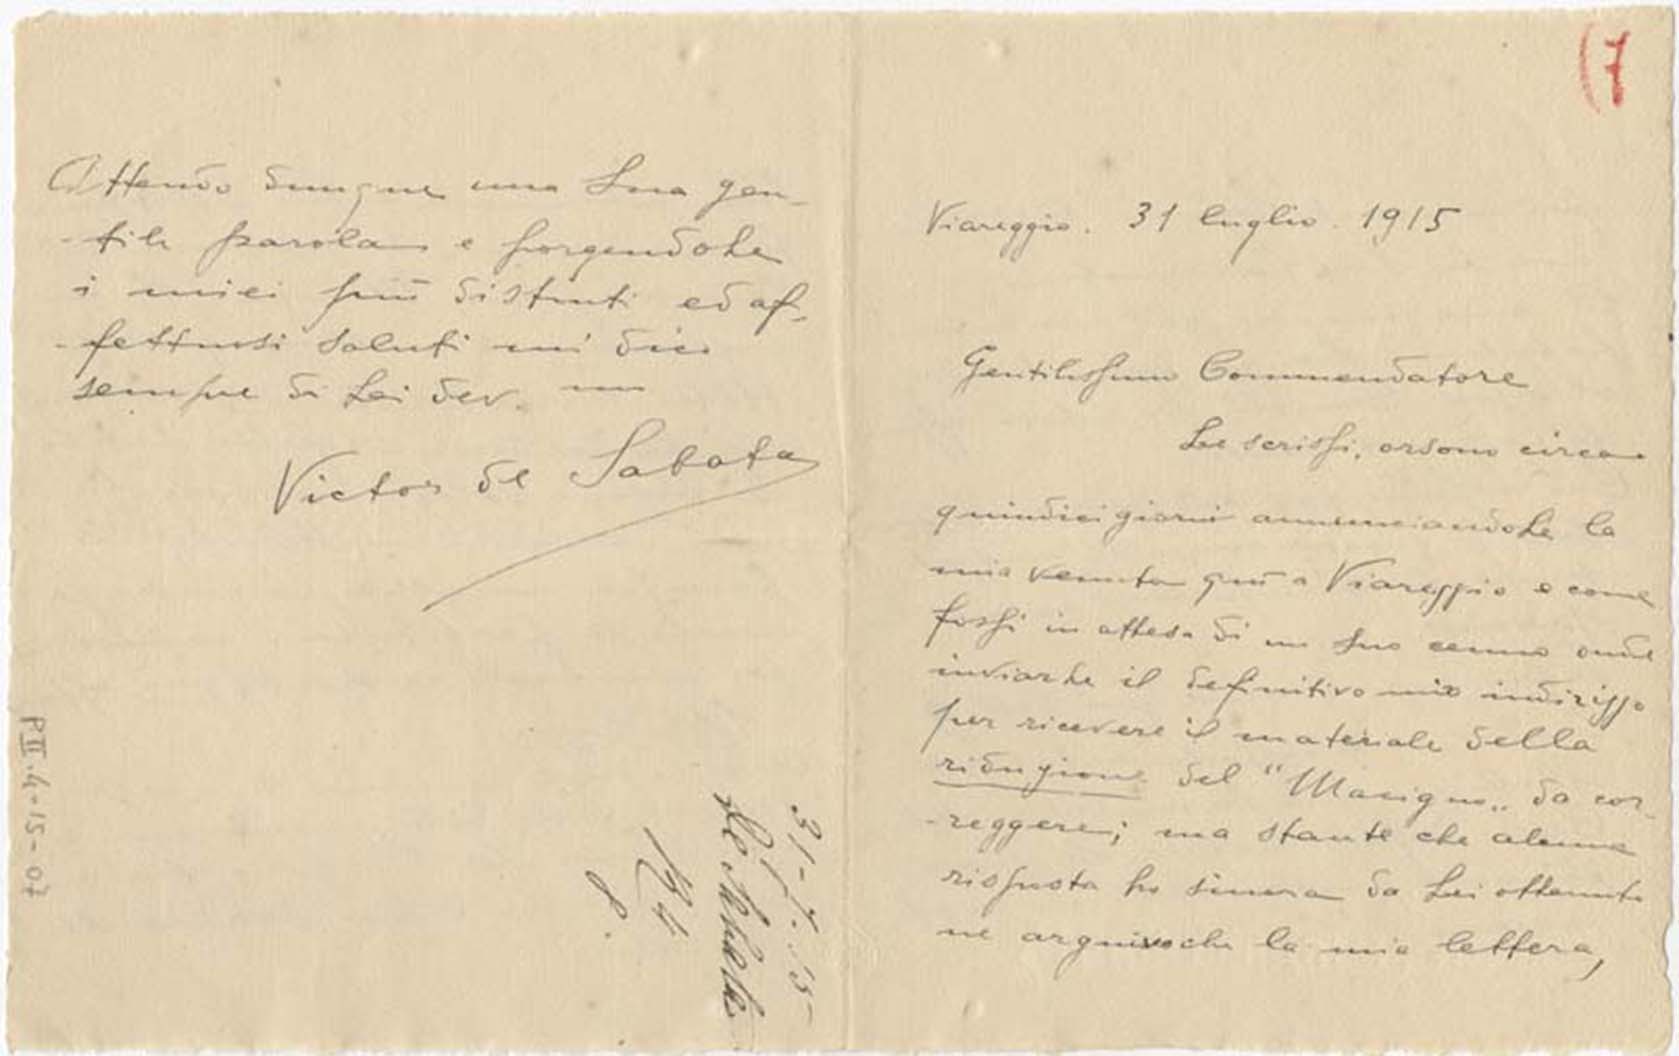 (7
Viareggio. 31 luglio. 1915
Gentilissimo Commendatore
Le scrissi, orsono circa
quindici giorni annunciandoLe la
mia venuta quì a Viareggio e come
fossi in attesa di un Suo cenno onde
inviarLe il definitivo mio indirizzo
per ricevere il materiale della
riduzione del "Macigno„ da cor-
-reggere; ma stante che alcuna
risposta ho sinora da Lei ottenuto
ne arguivo che la mia lettera,
Attendo dunque una Sua gen-
-tile parola e porgendoLe
i miei più distinti ed af-
-fettuosi saluti mi dico
sempre di Lei dev. mo
Victor de Sabata
31-7.15-
De Sabata
P II.4-15-07